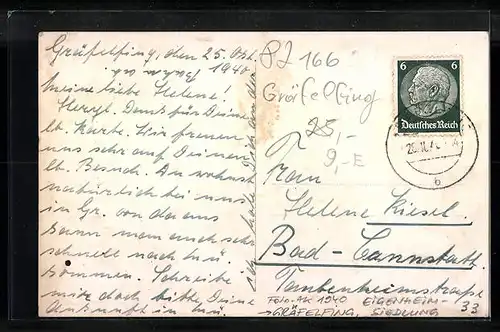 Gräfelfing, den 25. Okt.
1940.
Meine liebe Helene!
Herzl. Dank für Deine
lb. Karte. Wir freuen
uns sehr auf Deinen
lb. Besuch. Du wohnst
natürlich bei uns
in Gr. von da aus
kann man auch sehr
schnell nach
kommen. Schreibe
mir doch bitte, Deine
Ankunft in
PZ 166
Gräfelfing
25,-
9,-E
6 6
Deutsches Reich
b
Frau
Helene Kiesel
Bad-Cannstatt
Taubenheimstraße
33
Foto-AK 1940 EIGENHEIM-
→GRÄFELFING, SIEDLUNG